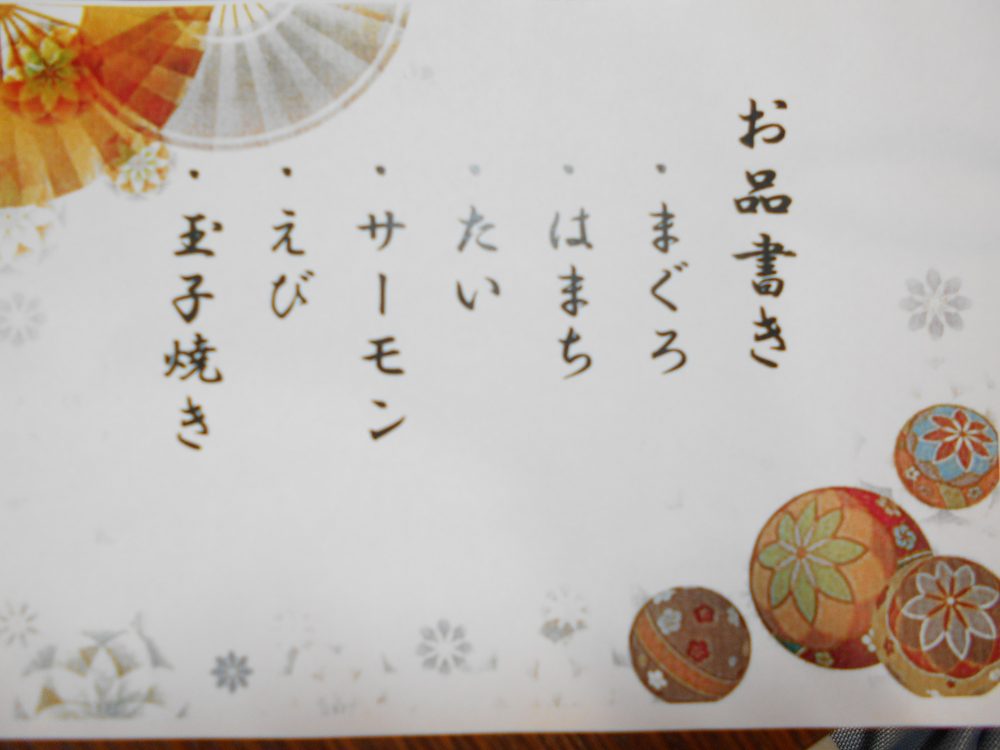 お品書き
・まぐろ
・はまち
・たい
・サーモン
・えび
・玉子焼き